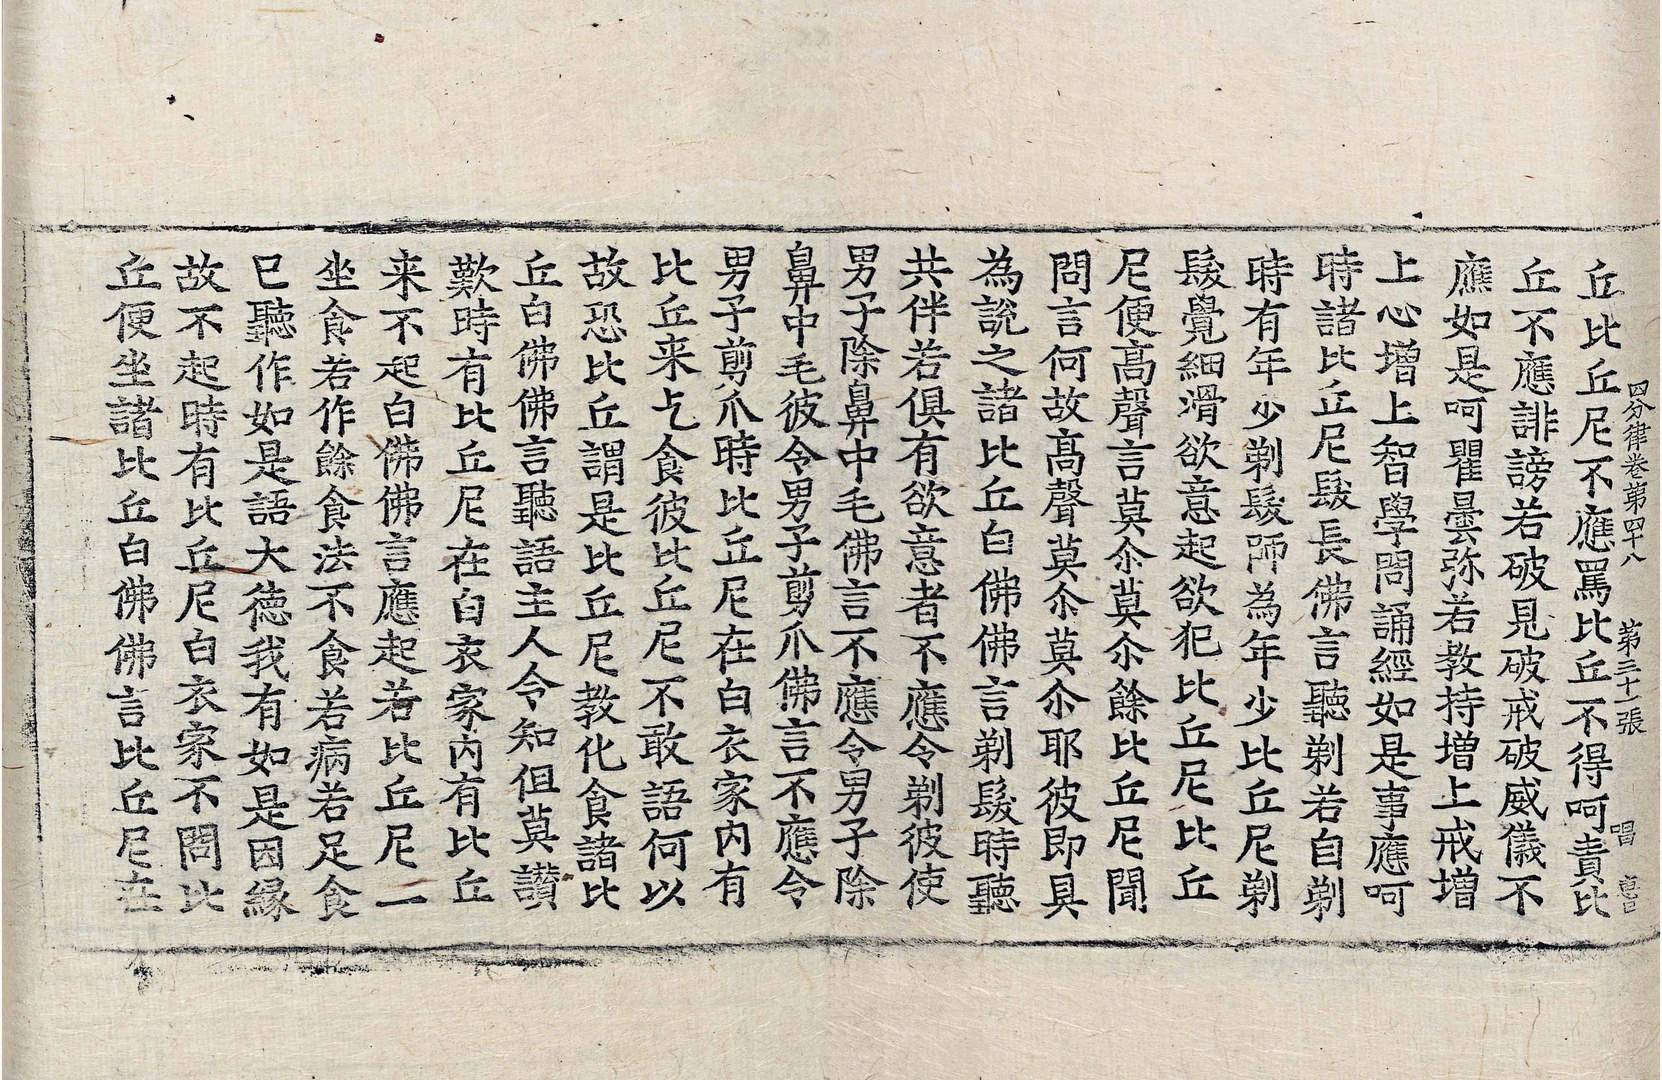 四分律卷第四十八 第三十一張 唱
丘比丘尼不應罵比丘不得呵責比
丘不應誹謗若破見破戒破威儀不
應如是呵瞿曇弥若教持增上戒增
上心增上智學問誦經如是事應呵
時諸比丘尼髮長佛言聽剃若自剃
時有年少剃髮師為年少比丘尼剃
髮覺細滑欲意起欲犯比丘尼比丘
尼便高聲言莫尒莫尒餘比丘尼聞
問言何故高聲莫尒莫尒耶彼即具
為說之諸比丘白佛佛言剃髮時聽
共伴若俱有欲意者不應令剃彼使
男子除鼻中毛佛言不應令男子除
鼻中毛彼令男子剪爪佛言不應令
男子剪爪時比丘尼在白衣家內有
比丘来乞食彼比丘尼不敢語何以
故恐比丘謂是比丘尼教化食諸比
丘白佛佛言聽語主人令知但莫讃
歎時有比丘尼在白衣家內有比丘
来不起白佛佛言應起若比丘尼一
坐食若作餘食法不食若病若足食
已聽作如是語大德我有如是因緣
故不起時有比丘尼白衣家不問比
丘便坐諸比丘白佛佛言比丘尼在